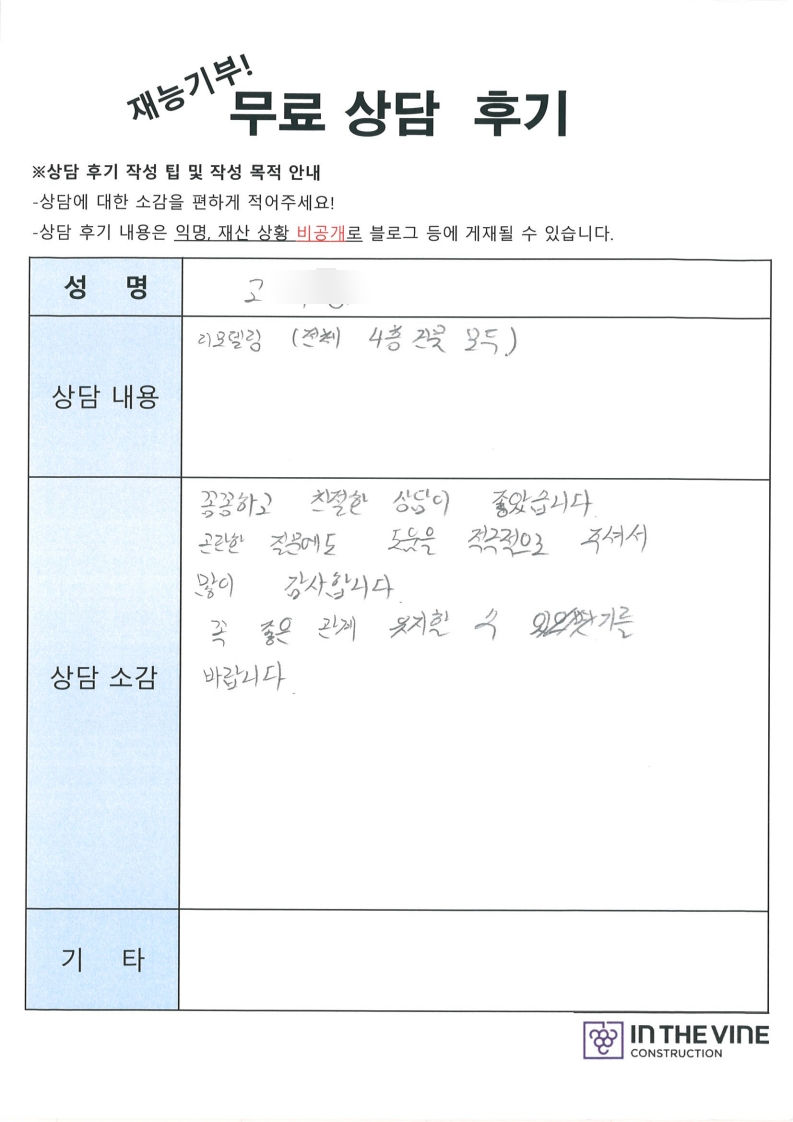 재능기부!
무료 상담 후기
※상담 후기 작성 팁 및 작성 목적 안내
-상담에 대한 소감을 편하게 적어주세요!
-상담 후기 내용은 익명, 재산 상황 비공개로 블로그 등에 게재될 수 있습니다.
성 명
고
상담 내용
리모델링 (전체 4층 건물 모두)
상담 소감
꼼꼼하고 친절한 상담이 좋았습니다.
곤란한 질문에도 도움을 적극적으로 주셔서
많이 감사합니다.
꼭 좋은 관계 유지할 수 기를
바랍니다.
기 타
IN THE VINE
CONSTRUCTION